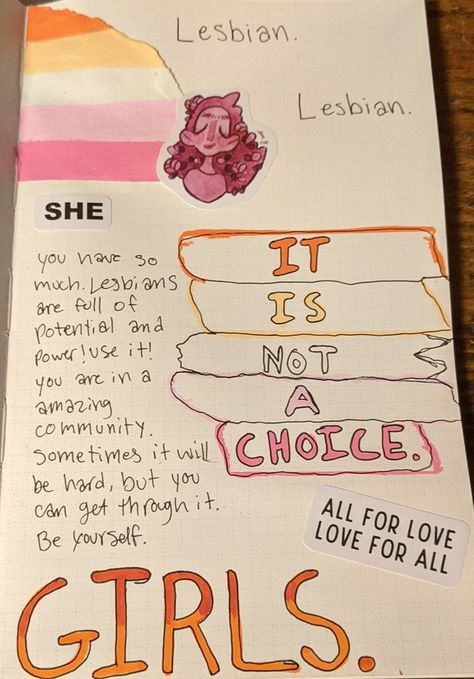 Lesbian.
Lesbian.
SHE
you have so
much. Lesbians
are full of
potential and
power! use it!
you are in a
amazing
community.
Sometimes it will
be hard, but you
can get through it.
Be yourself.
IT
IS
NOT
A
CHOICE.
ALL FOR LOVE
LOVE FOR ALL
GIRLS.